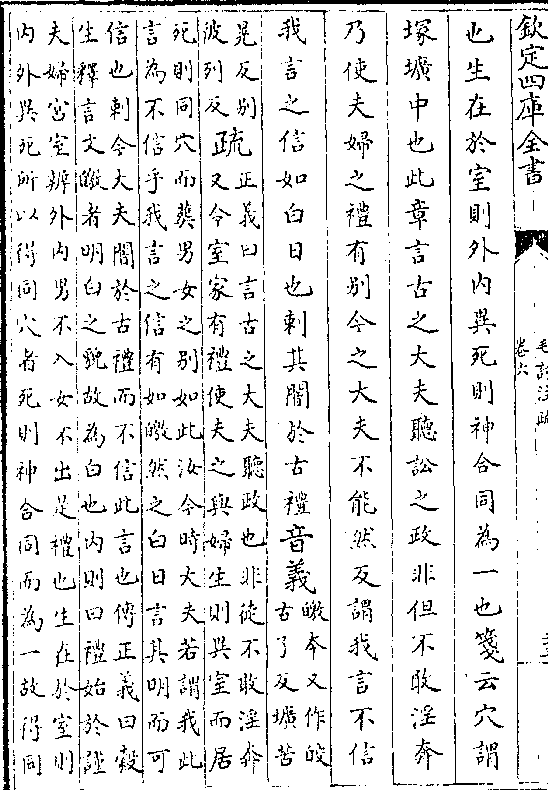 欽定四庫全書
毛詩注疏
卷六
也生在於室則外内異死則神合同為一也箋云穴謂
塚壙中也此章言古之大夫聽訟之政非但不敢淫奔
乃使夫婦之禮有別今之大夫不能然反謂我言不信
我言之信如白日也刺其闇於古禮音義皦本又作皎
古了反壙苦
晃反別
彼列反疏正義曰言古之大夫聽政也非徒不敢淫奔
又令室家有禮使夫之與婦生則異室而居
死則同穴而葬男女之別如此汝今時大夫若謂我此
言為不信乎我言之信有如皦然之白日言其明而可
信也刺今大夫闇於古禮而不信此言也傳正義曰穀
生釋言文皦者明白之貌故為白也内則曰禮始於謹
夫婦宮室辨外内男不入女不出是禮也生在於室則
内外異死所以得同穴者死則神合同而為一故得同